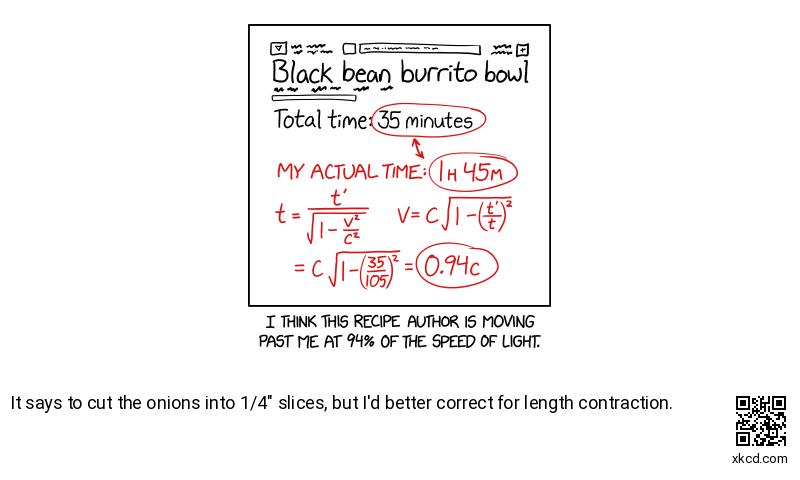 Black bean burrito bowl
Total time: 35 minutes
MY ACTUAL TIME: 1H 45M
t = t' / √(1 - v²/c²)   V = C√(1 - (t'/t)²)
= C√(1 - (35/105)²) = 0.94c
I THINK THIS RECIPE AUTHOR IS MOVING
PAST ME AT 94% OF THE SPEED OF LIGHT.
It says to cut the onions into 1/4" slices, but I'd better correct for length contraction.
xkcd.com